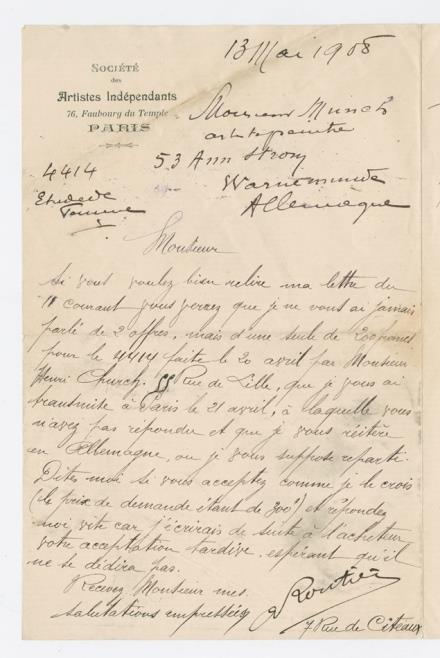 13 Mai 1908
SOCIÉTÉ
des
Artistes Indépendants
76, Faubourg du Temple
PARIS
Monsieur Munch
artiste peintre
53 Ann Strom
Warnemunde
Allemagne
4414
Etude de
Femme
Monsieur
Si vous voulez bien relire ma lettre du
11 courant vous verrez que je ne vous ai jamais
parlé de 2 offres, mais d'une seule de 200 francs
pour le 4414 faite le 20 avril par Monsieur
Henri Church. 55 Rue de Lille, que je vous ai
transmise à Paris le 21 avril, à laquelle vous
n'avez pas répondu et que je vous réitère
en Allemagne, ou je vous suppose reparti.
Dites moi si vous acceptez comme je le crois
(le prix de demande étant de 300f) et répondez
moi vite car j'écrirais de suite à l'acheteur
votre acceptation tardive. espérant qu'il
ne se dédira pas.
Recevez Monsieur mes
salutations empressées
Routier
7 Rue de Citeaux